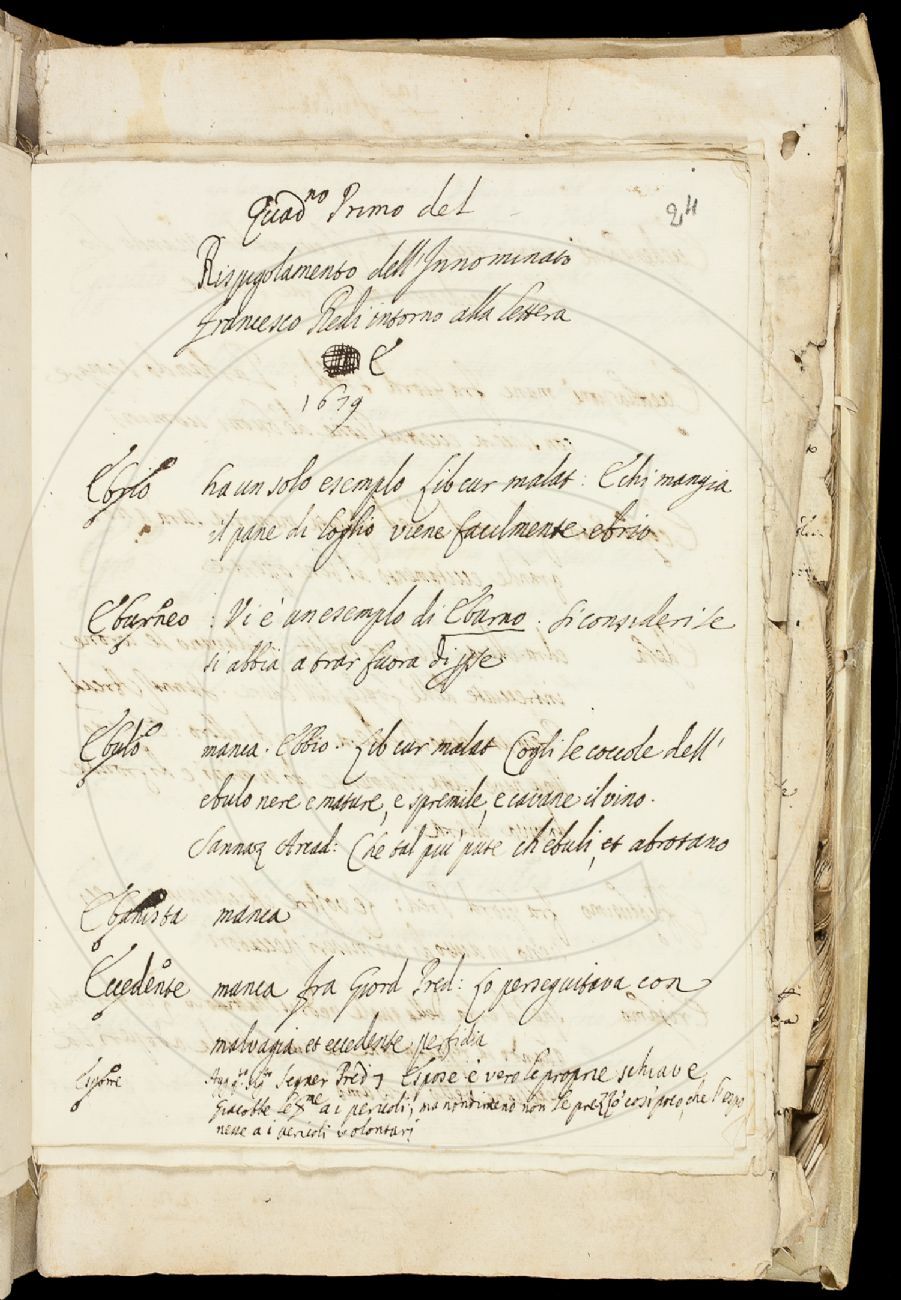 24
Quad.no Primo del
Rispigolamento dell'Innominato
Francesco Redi intorno alla lettera
E
1679
Ebrio ha un solo esemplo Lib cur malat: E chi mangia
il pane di loglio viene facilmente ebrio
Eburneo : Vi è un esemplo di Eburno. Si consideri se
si abbia a trar fuora di per se
Ebulo manca. Ebbio. Lib cur malat Cogli le coccole dell'
ebulo nere e mature, e spremile, e cavane il vino.
Sannaz Arcad: Che tal più pute ch'ebuli, et abrotano
Ebanista manca
Eccedente manca fra Giord Pred: Lo perseguitava con
malvagia et eccedente perfidia
Segner Pred 7 Espose è vero le proprie schiave
Giacobbe ai pericoli; ma non le prezzò così poco, che l'espo
nesse a i pericoli volontarj